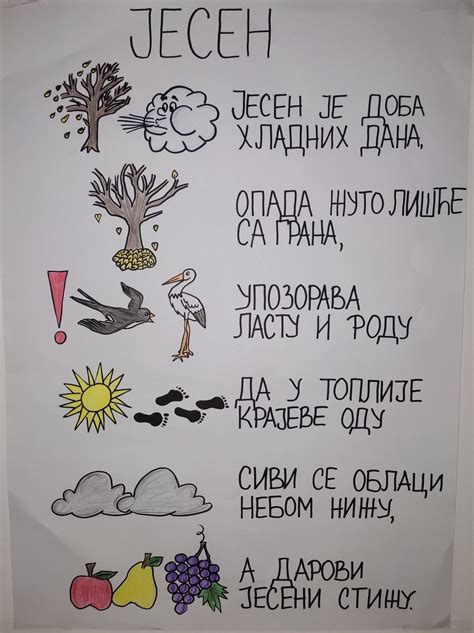 ЈЕСЕН
ЈЕСЕН ЈЕ ДОБА
ХЛАДНИХ ДАНА,
ОПАДА ЖУТО ЛИШЋЕ
СА ГРАНА,
УПОЗОРАВА
ЛАСТУ И РОДУ
ДА У ТОПЛИЈЕ
КРАЈЕВЕ ОДУ
СИВИ СЕ ОБЛАЦИ
НЕБОМ НИЖУ,
А ДАРОВИ
ЈЕСЕНИ СТИЖУ.